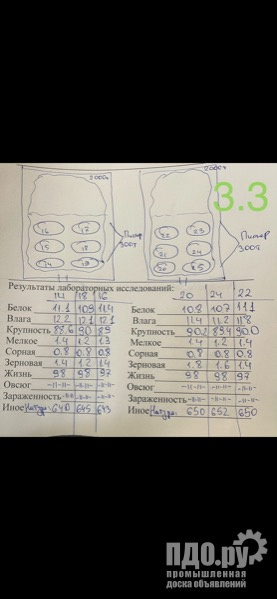 2000т 2000т
3.3
16 17 22 23
15 18 21 24
14 19 20 25
300т 300т
Результаты лабораторных исследований:
14 18 16 20 24 22
Белок 11.1 10.9 11.4 Белок 10.8 10.7 11.1
Влага 12.2 12.1 12.1 Влага 11.4 11.2 11.8
Крупность 88.6 90 89 Крупность 90.2 89.4 90.0
Мелкое 1.4 1.2 1.3 Мелкое 1.4 1.2 1.4
Сорная 0.8 0.8 0.8 Сорная 0.8 0.8 0.8
Зерновая 1.4 1.2 1.4 Зерновая 1.8 1.6 1.4
Жизнь 98 98 97 Жизнь 98 98 97
Овсюг -11- -11- -11- Овсюг -11- -11- -11-
Зараженность -11- -11- -11- Зараженность -11- -11- -11-
Иное Натура 640 645 643 Иное Натура 650 652 650
ПДО.ру
промышленная
доска объявлений